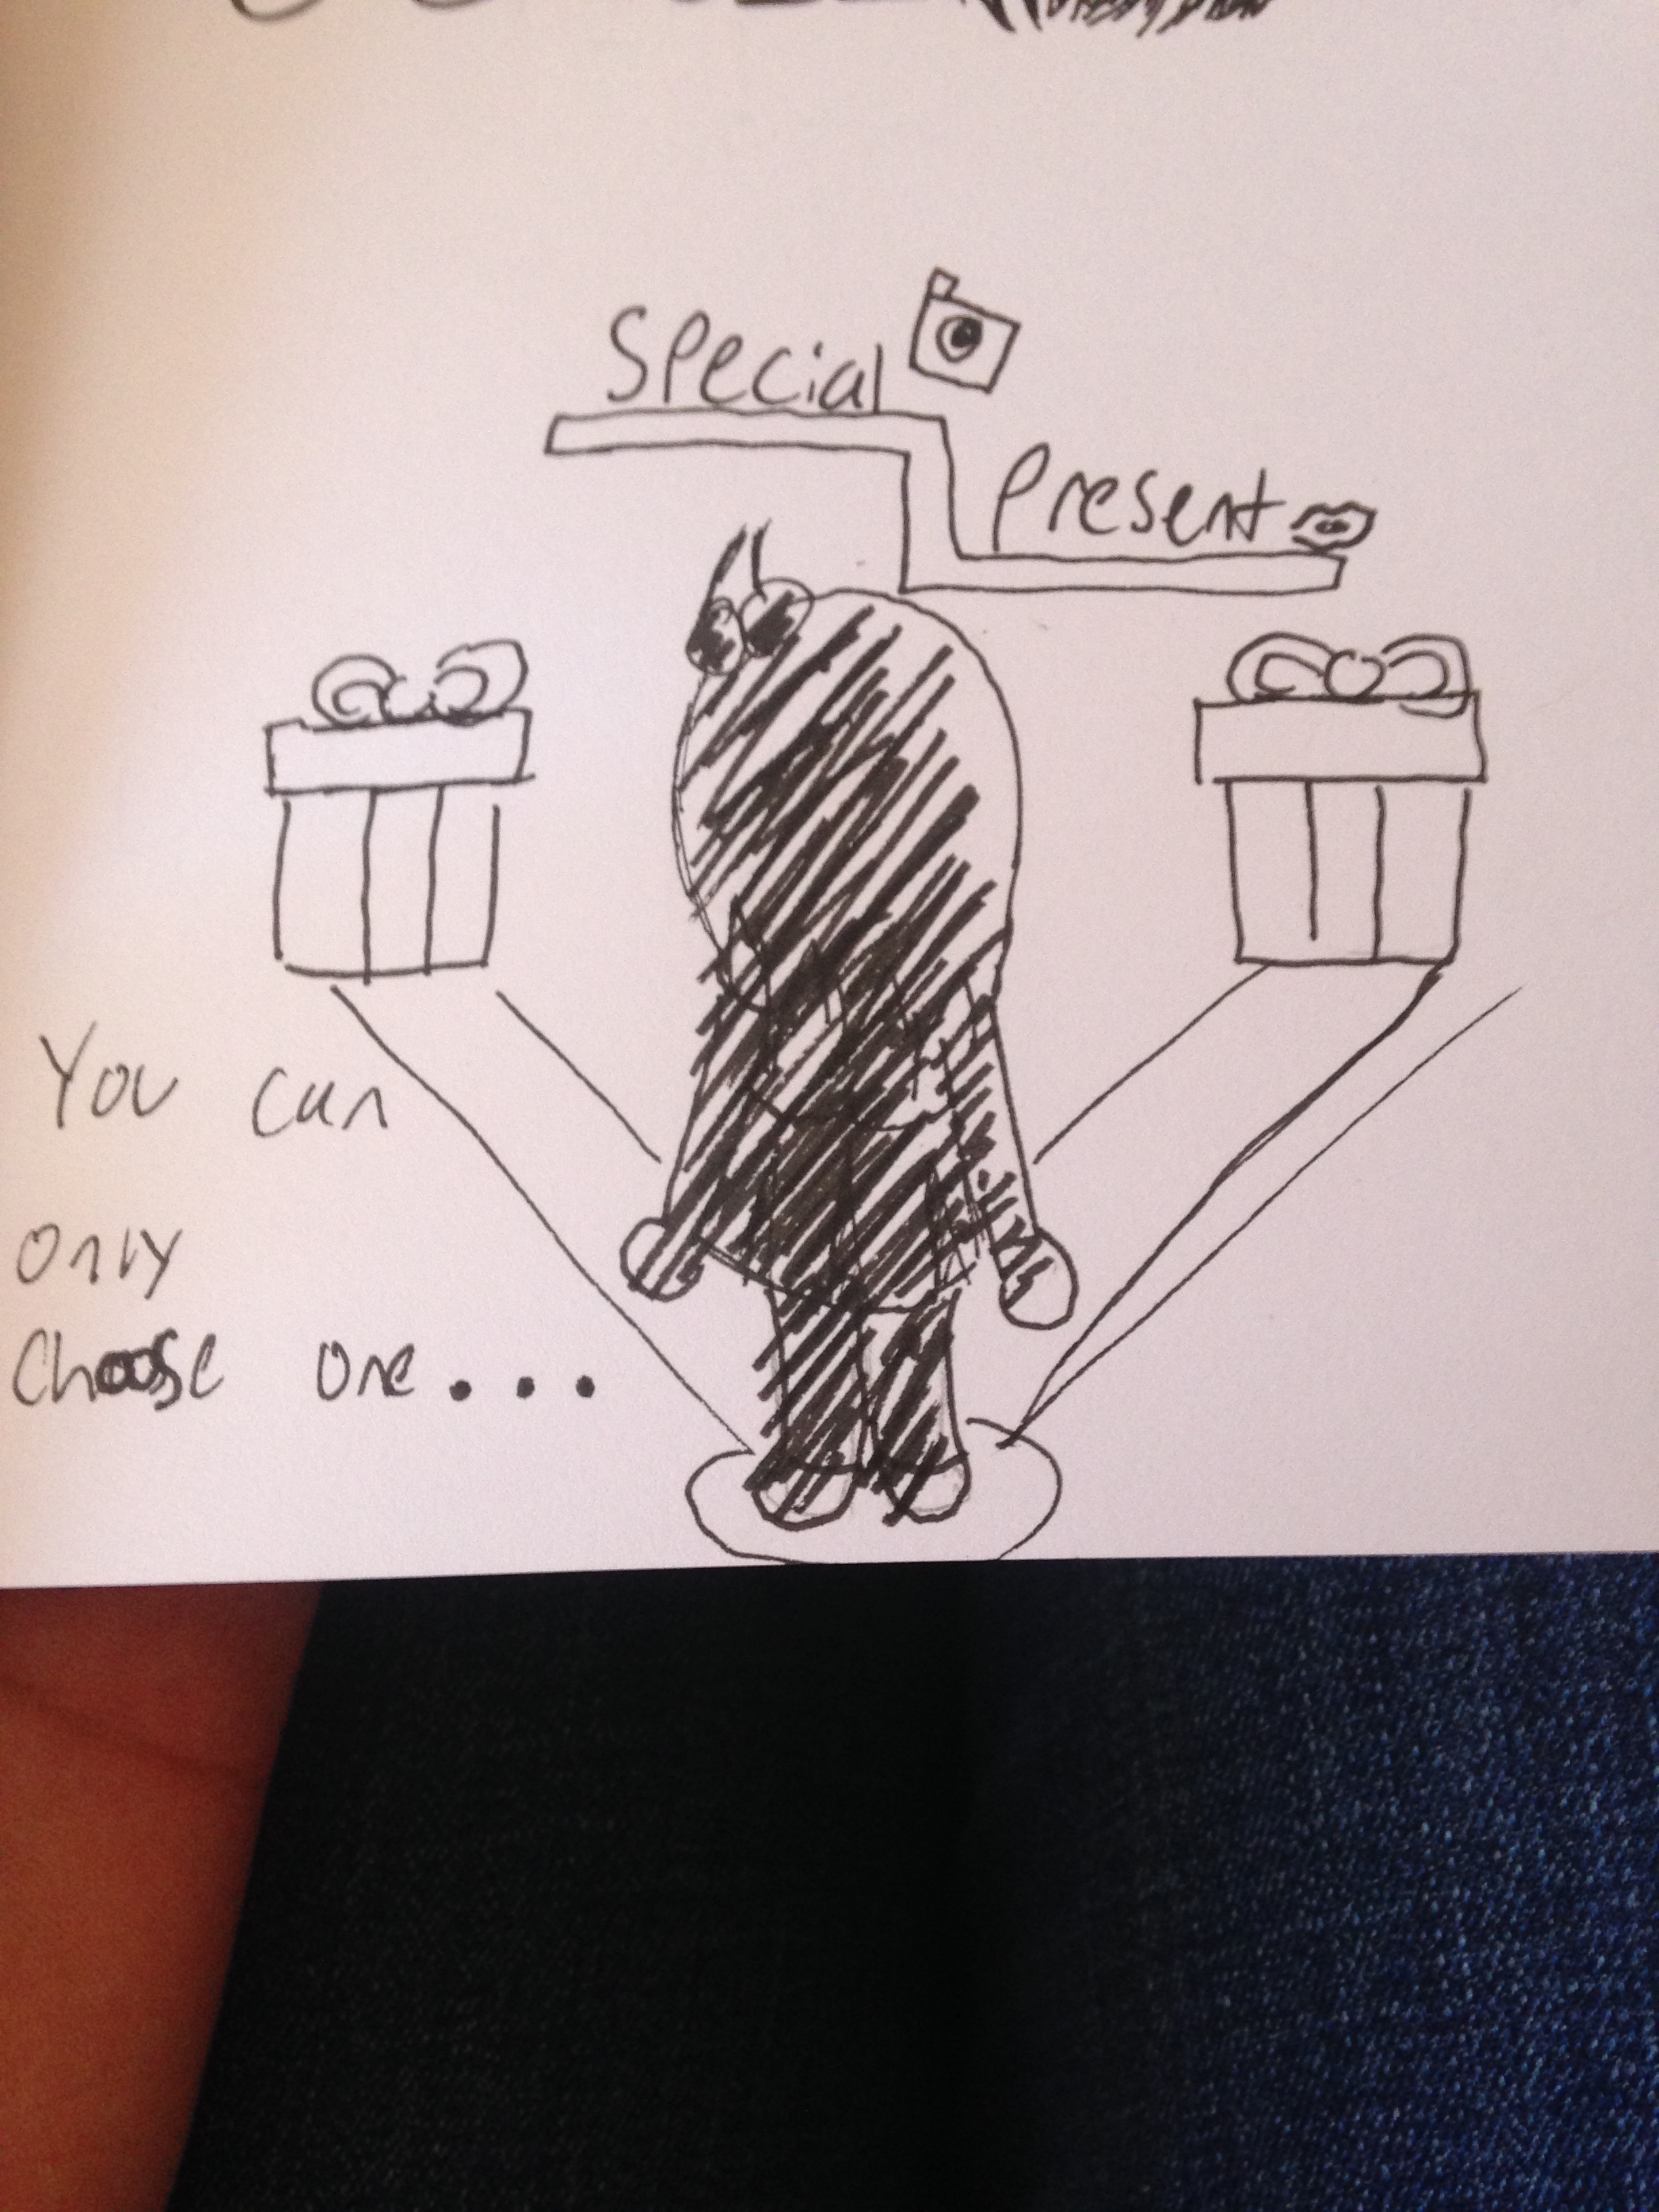 Special
Present
You can
only
choose one...